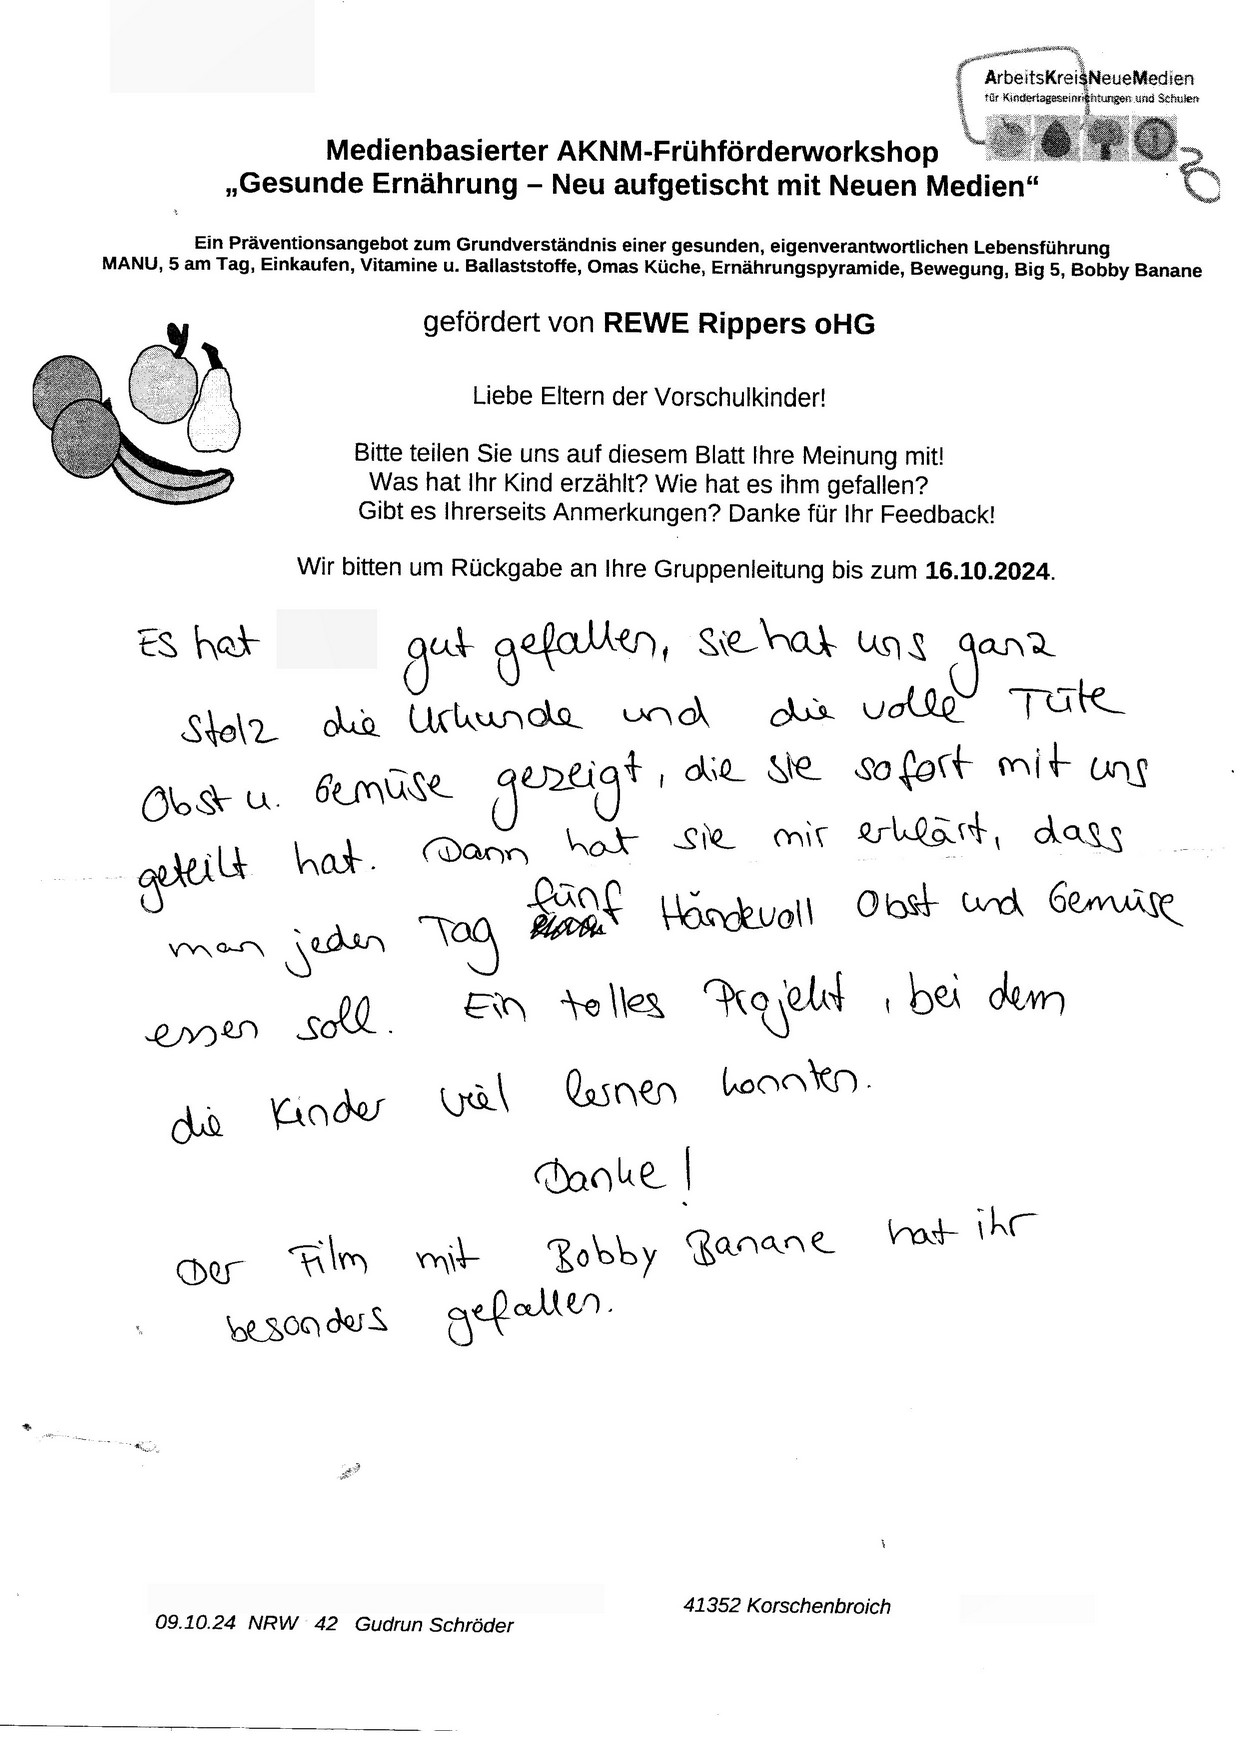 ArbeitsKreisNeueMedien
für Kindertageseinrichtungen und Schulen
Medienbasierter AKNM-Frühförderworkshop
„Gesunde Ernährung – Neu aufgetischt mit Neuen Medien“
Ein Präventionsangebot zum Grundverständnis einer gesunden, eigenverantwortlichen Lebensführung
MANU, 5 am Tag, Einkaufen, Vitamine u. Ballaststoffe, Omas Küche, Ernährungspyramide, Bewegung, Big 5, Bobby Banane
gefördert von REWE Rippers oHG
Liebe Eltern der Vorschulkinder!
Bitte teilen Sie uns auf diesem Blatt Ihre Meinung mit!
Was hat Ihr Kind erzählt? Wie hat es ihm gefallen?
Gibt es Ihrerseits Anmerkungen? Danke für Ihr Feedback!
Wir bitten um Rückgabe an Ihre Gruppenleitung bis zum 16.10.2024.
Es hat gut gefallen, sie hat uns ganz
stolz die Urkunde und die volle Tüte
Obst u. Gemüse gezeigt, die sie sofort mit uns
geteilt hat. Dann hat sie mir erklärt, dass
man jeden Tag fünf Händevoll Obst und Gemüse
essen soll. Ein tolles Projekt, bei dem
die Kinder viel lernen konnten.
Danke!
Der Film mit Bobby Banane hat ihr
besonders gefallen.
41352 Korschenbroich
09.10.24 NRW 42 Gudrun Schröder